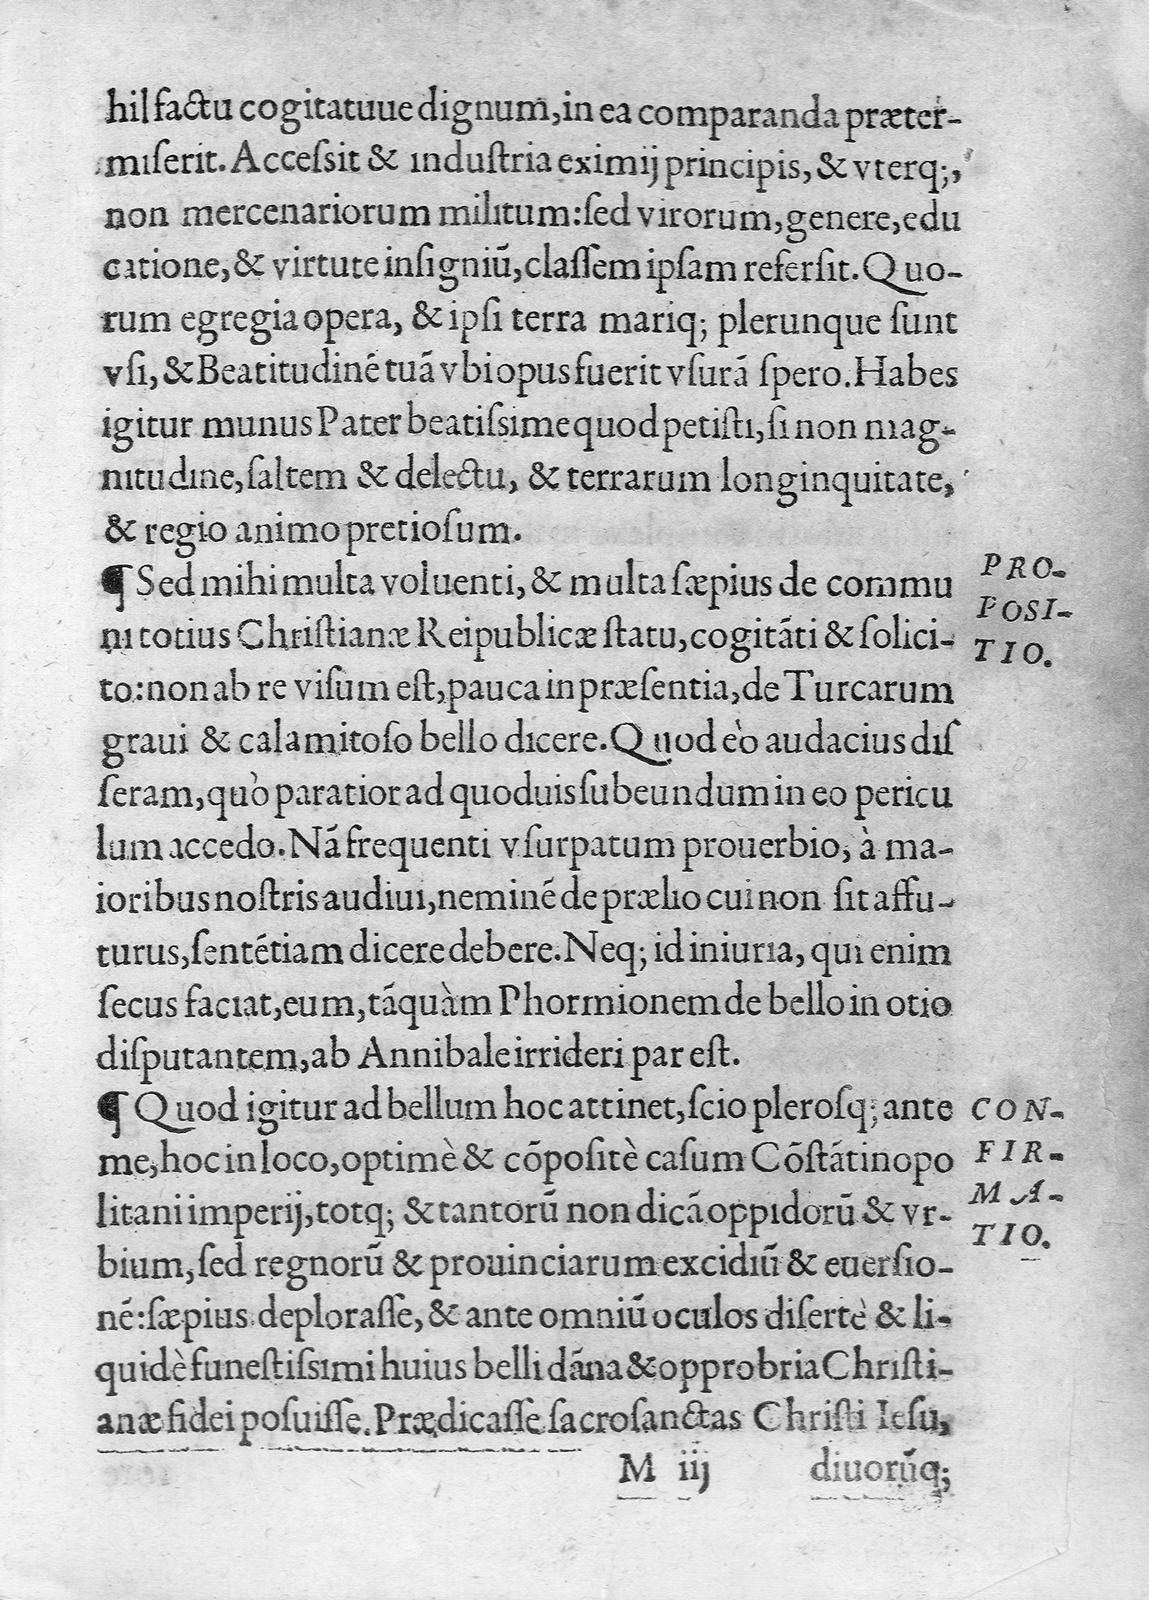 hil factu cogitatuue dignum, in ea comparanda præter-
miſerit. Acceſsit & induſtria eximij principis, & vterq;,
non mercenariorum militum: ſed virorum, genere, edu
catione, & virtute inſigniũ, claſſem ipſam referſit. Quo-
rum egregia opera, & ipſi terra mariq; plerunque ſunt
vſi, & Beatitudinẽ tuã vbi opus fuerit vſurã ſpero. Habes
igitur munus Pater beatiſsime quod petiſti, ſi non mag-
nitudine, ſaltem & delectu, & terrarum longinquitate,
& regio animo pretioſum.
¶ Sed mihi multa voluenti, & multa ſæpius de commu
ni totius Chriſtianæ Reipublicæ ſtatu, cogitãti & ſolici-
to: non ab re viſum eſt, pauca in præſentia, de Turcarum
graui & calamitoſo bello dicere. Quod eò audacius diſ
ſeram, quò paratior ad quoduis ſubeundum in eo pericu
lum accedo. Nã frequenti vſurpatum prouerbio, à ma-
ioribus noſtris audiui, neminẽ de prælio cui non ſit affu-
turus, ſentẽtiam dicere debere. Neq; id iniuria, qui enim
ſecus faciat, eum, tãquàm Phormionem de bello in otio
diſputantem, ab Annibale irrideri par eſt.
¶ Quod igitur ad bellum hoc attinet, ſcio pleroſq; ante
me, hoc in loco, optimè & cõpoſitè caſum Cõſtãtinopo
litani imperij, totq; & tantorũ non dicã oppidorũ & vr-
bium, ſed regnorũ & prouinciarum excidiũ & euerſio-
nẽ: ſæpius deploraſſe, & ante omniũ oculos diſertè & li-
quidè funeſtiſsimi huius belli dãna & opprobria Chriſti-
anæ fidei poſuiſſe. Prædicaſſe ſacroſanctas Chriſti Ieſu,
M iij diuorũq;
PRO-
POSI-
TIO.
CON-
FIR-
MA-
TIO.